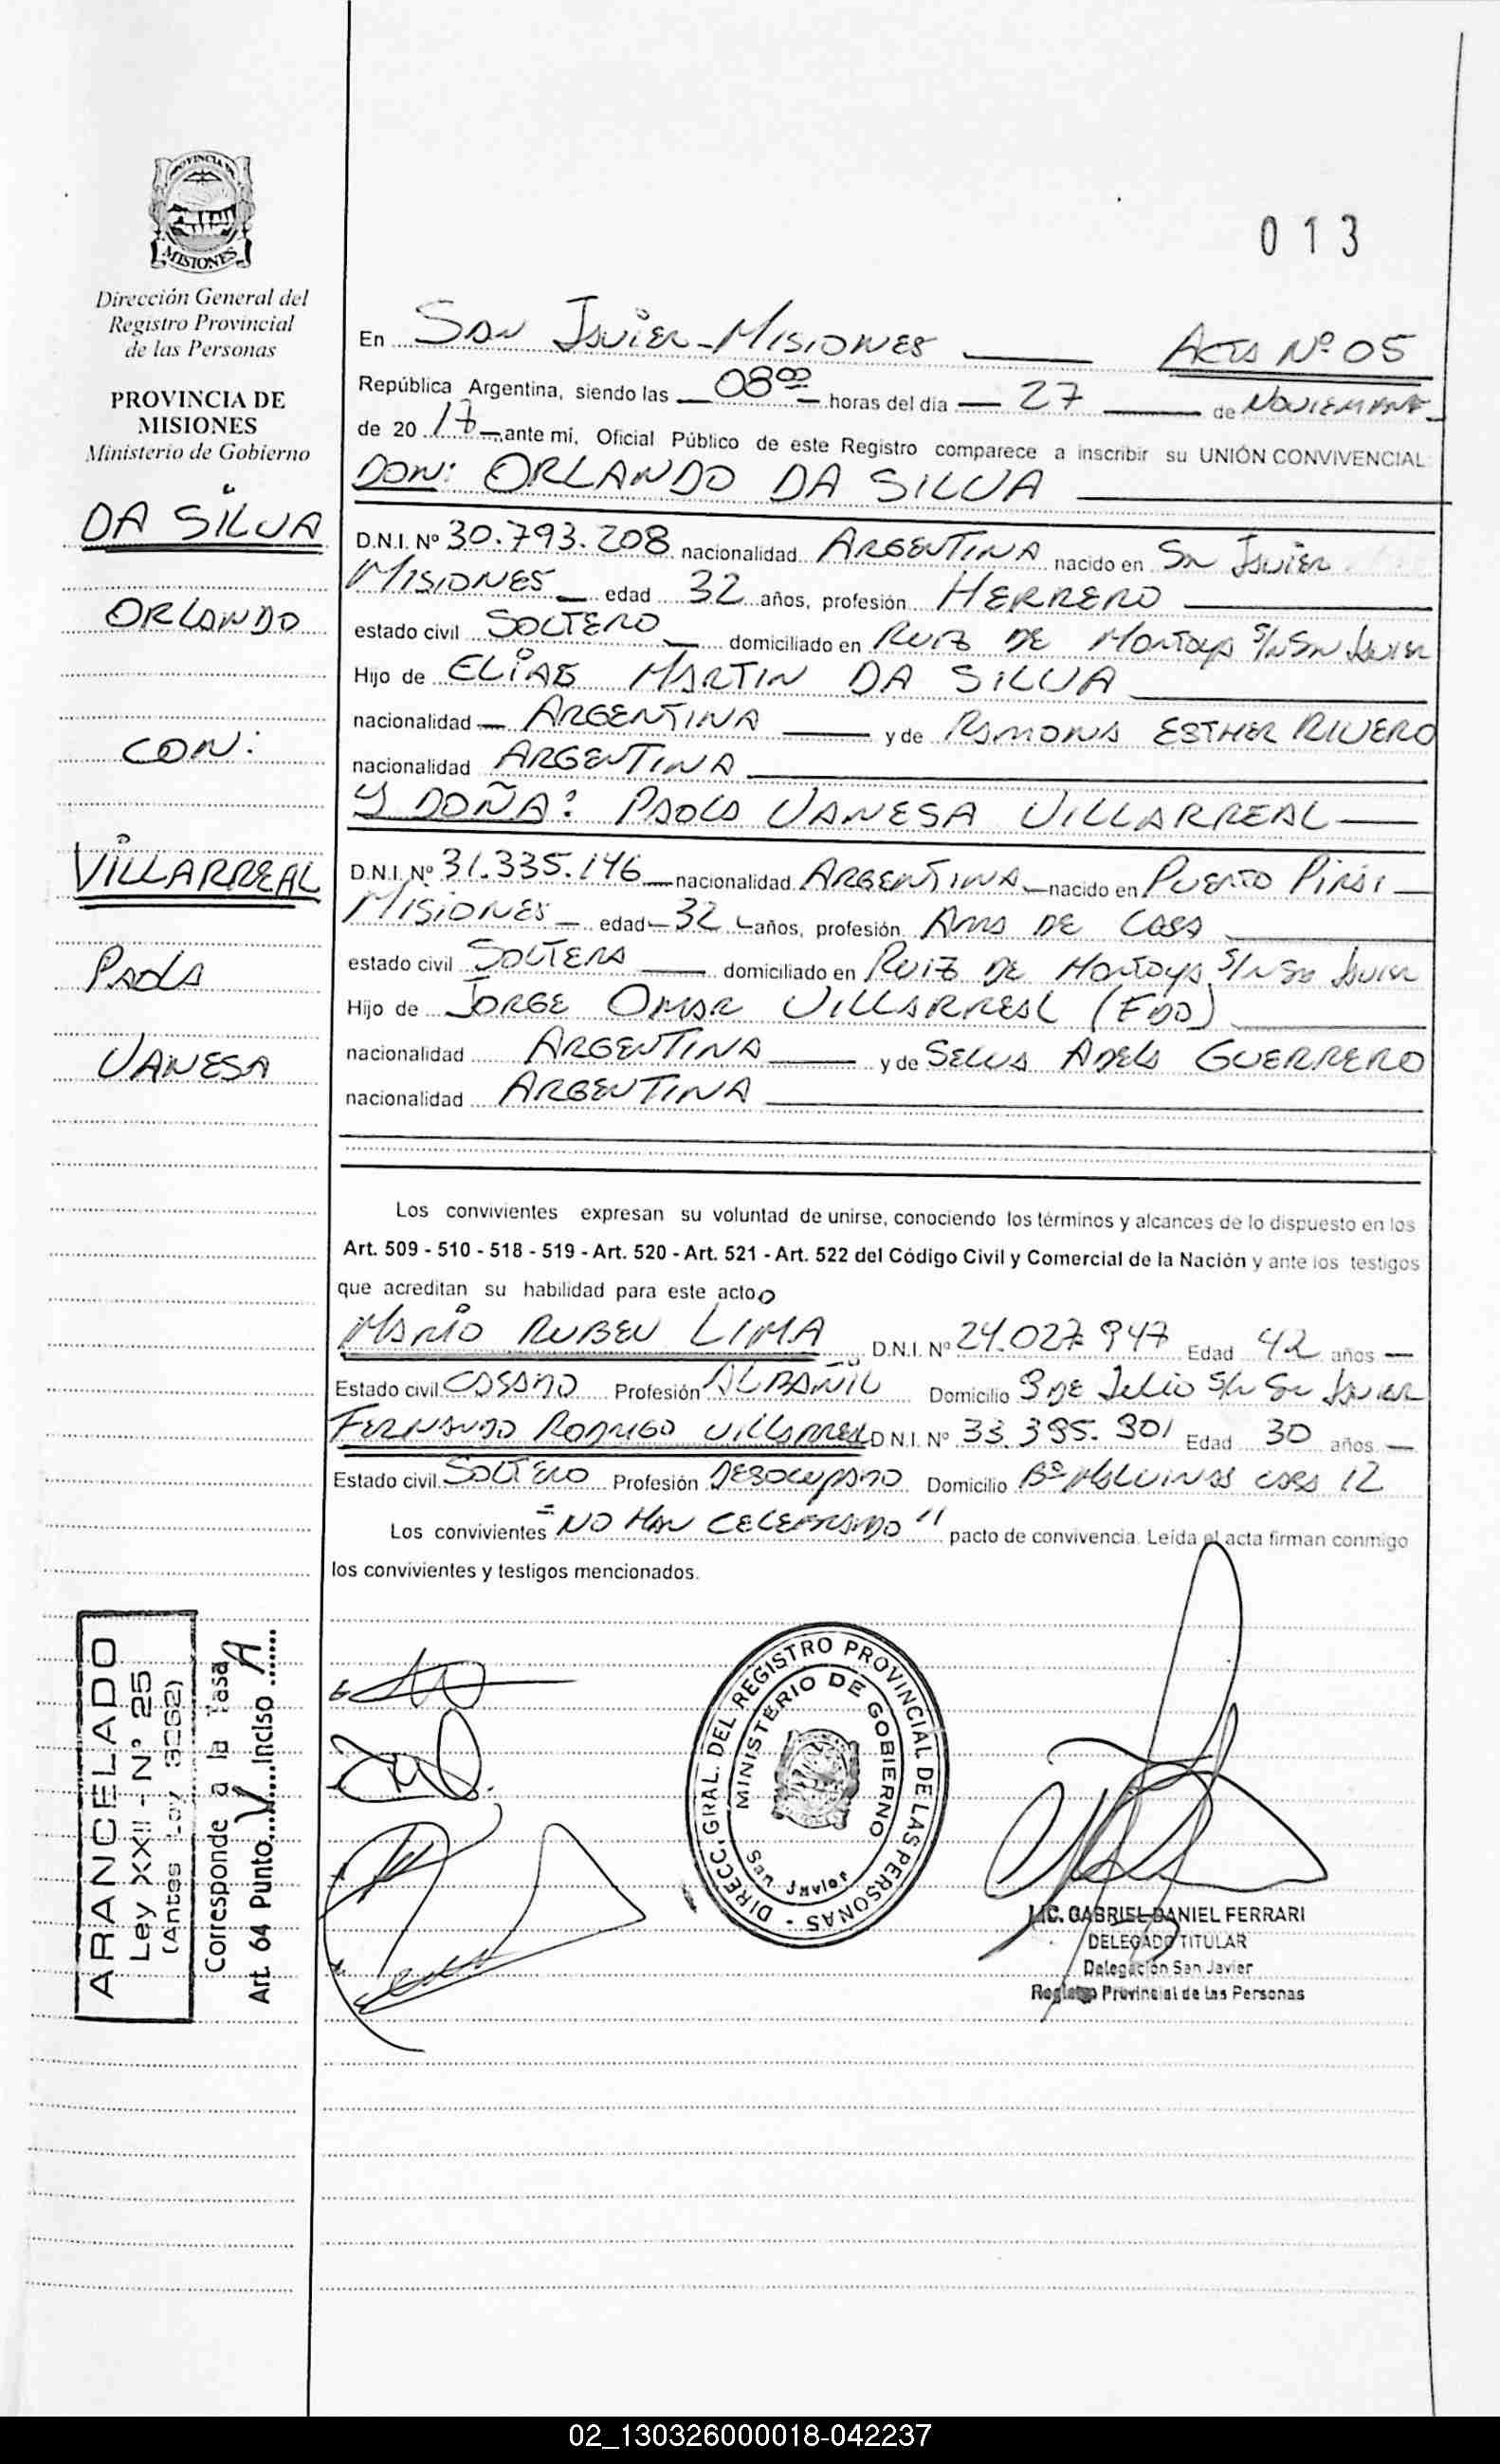 PROVINCIA DE
MISIONES
Dirección General del
Registro Provincial
de las Personas
PROVINCIA DE
MISIONES
Ministerio de Gobierno
DA SILVA
ORLANDO
CON:
VILLARREAL
PAOLA
VANESA
ARANCELADO
Ley XXII - N° 25
(Antes Ley 3262)
Corresponde a la Tasa
Art. 64 Punto V Inciso A
013
En SAN JAVIER - MISIONES ACTA Nº 05
República Argentina, siendo las 08:00 horas del día 27 de NOVIEMBRE
de 2017 ante mi, Oficial Público de este Registro comparece a inscribir su UNIÓN CONVIVENCIAL
DON: ORLANDO DA SILVA
D.N.I. Nº 30.793.208 nacionalidad ARGENTINA nacido en SAN JAVIER
MISIONES edad 32 años, profesión HERRERO
estado civil SOLTERO domiciliado en RUIZ DE MONTOYA S/N SAN JAVIER
Hijo de ELIAS MARTIN DA SILVA
nacionalidad ARGENTINA y de RAMONA ESTHER RIVERO
nacionalidad ARGENTINA
Y DOÑA: PAOLA VANESA VILLARREAL
D.N.I. Nº 31.335.146 nacionalidad ARGENTINA nacido en PUERTO PIRAI
MISIONES edad 32 años, profesión AMA DE CASA
estado civil SOLTERA domiciliado en RUIZ DE MONTOYA S/N SAN JAVIER
Hijo de JORGE OMAR VILLARREAL (FDO)
nacionalidad ARGENTINA y de SELVA ADELA GUERRERO
nacionalidad ARGENTINA
Los convivientes expresan su voluntad de unirse, conociendo los términos y alcances de lo dispuesto en los
Art. 509 - 510 - 518 - 519 - Art. 520 - Art. 521 - Art. 522 del Código Civil y Comercial de la Nación y ante los testigos
que acreditan su habilidad para este acto
MARIO RUBEN LIMA D.N.I. Nº 24.027.947 Edad 42 años
Estado civil CASADO Profesión ALBAÑIL Domicilio 9 DE JULIO S/N SAN JAVIER
FERNANDO RODRIGO VILLARREAL D.N.I. Nº 33.395.901 Edad 30 años
Estado civil SOLTERO Profesión DESOCUPADO Domicilio Bº MALVINAS CASA 12
Los convivientes "NO HAN CELEBRADO" pacto de convivencia. Leída el acta firman conmigo
los convivientes y testigos mencionados.
DIRECC. GRAL. DEL REGISTRO PROVINCIAL DE LAS PERSONAS -
MINISTERIO DE GOBIERNO
San Javier
LIC. GABRIEL DANIEL FERRARI
DELEGADO TITULAR
Delegación San Javier
Registro Provincial de las Personas
02_130326000018-042237